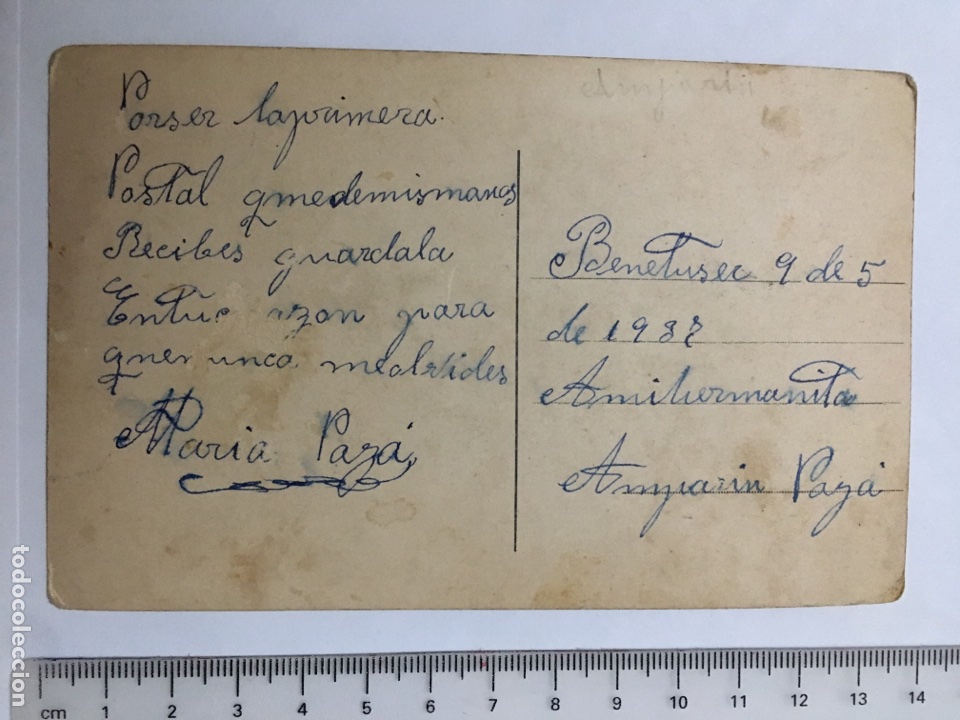 Porser laprimera.
Postal quedemismanos
Recibes guardala
Entuc razon para
quenunca meolvides
Maria Payá
Benetuser 9 de 5
de 1937
Amihermanita
Amparin Payá
todocoleccion
cm 1 2 3 4 5 6 7 8 9 10 11 12 13 14